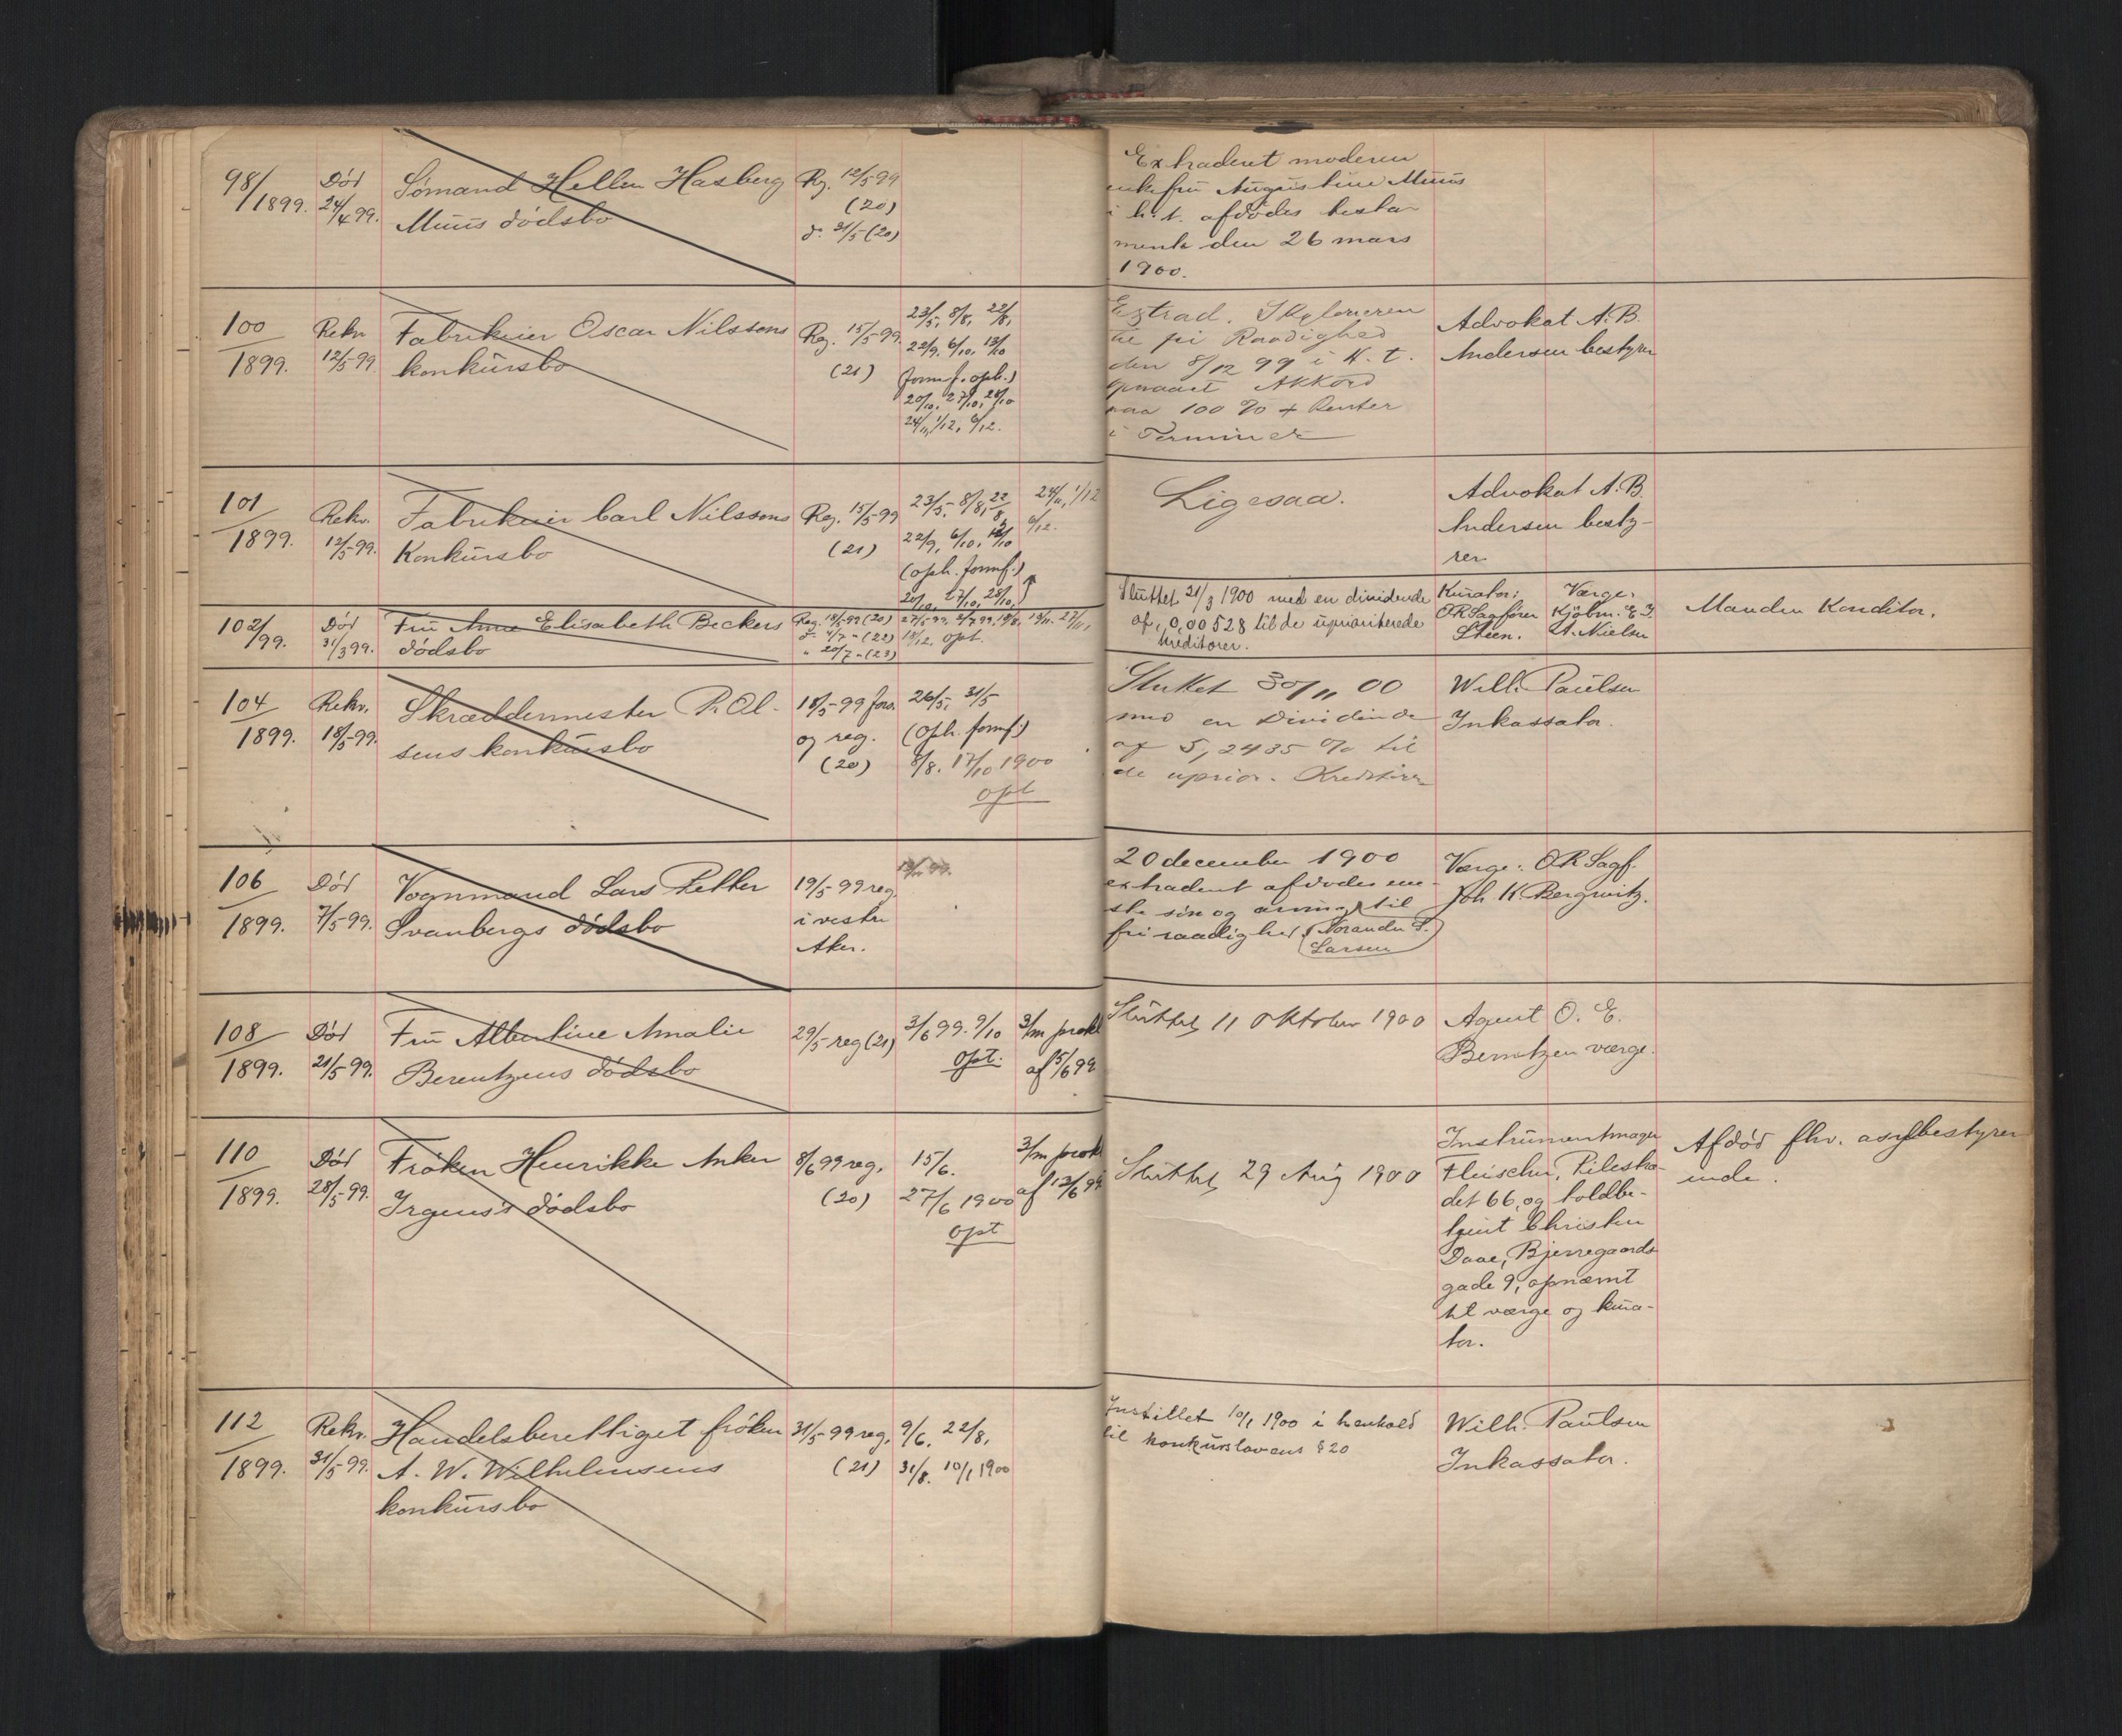 98/1899. Død 24/4 99. Sömand Hellen Hasberg Rg. 12/5 99
Muus dödsbo (20)
d. 31/5 (20)
Extraderet moderen
enkefru Augustine Muus
i h.t. afdødes testa-
mente den 26 mars
1900.
100/1899. Rekv. 12/5-99 Fabrikeier Oscar Nilssons Reg. 15/5-99.
konkursbo (21)
23/5, 8/8, 22/8,
22/9, 6/10, 13/10
(formf. oph.)
20/10, 27/10, 28/10
24/11, 1/12, 6/12.
Extrad. Skyldneren
til fri Raadighed
den 8/12 99 i H. t.
opnaaet Akkord
paa 100 % + Renter
i Terminer
Advokat A. B.
Andersen bestyrer
101/1899. Rekv. 12/5-99. Fabrikeier Carl Nilssons Reg. 15/5-99
Konkursbo (21)
23/5, 8/8, 22/8,
22/9, 6/10, 13/10
(oph. formf.)
20/10, 27/10, 28/10,
24/11, 1/12
6/12.
Ligesaa.
Advokat A. B.
Andersen besty-
rer
102/99. Død 31/3 99. Fru Anne Elisabeth Beckers
dödsbo
Reg. 18/5-99 (20)
d. 4/7 " (22)
" 20/7 " (23)
18/12. opt.
Sluttet 21/3 1900 med en dividende
af 0,00528 til de uprioriterede
kreditorer.
Kurator:
ORSagfører
Steen.
Værge:
Kjöbm. E. J.
A. Nielsen
Manden Konditor.
104/1899. Rekv. 18/5-99. Skræddermester P. Ol-
sens konkursbo
18/5-99 fors.
og reg.
(20)
26/5, 31/5
(Oph. formf.)
8/8. 17/10 1900
opt
Sluttet 30/11 00
med en Dividende
af 5,2435 % til
de uprior. Kreditorer
Wilh. Paulsen
Inkassator.
106/1899. Død 7/5-99. Vognmand Lars Petter
Svanbergs dödsbo
19/5-99 reg.
i vestre
Aker.
20 december 1900
extraderet afdødes ene-
ste sön og arving til
fri raadighed (Norander S.
Larsen)
Værge: OR Sagf.
Joh K Bergwitz.
108/1899. Død 21/5-99. Fru Albertine Amalie
Berentzens dödsbo
29/5-reg (21)
3/6 99. 9/10
opt.
3/m prokl
af 5/6 99
Sluttet 11 Oktober 1900
Agent O. E.
Berntzen værge.
110/1899. Död 28/5-99. Fröken Henrikke Anker
Irgens's dödsbo
8/6 99 reg.
(20)
15/6.
27/6 1900
opt
3/m prokl
af 12/6 99
Sluttet 29 Aug 1900
Instrumentmager
Fleischer, Pilestræ-
det 66, og toldbe-
tjent Christen
Daae, Bjerregaards-
gade 9, opnævnt
til værge og kura-
tor.
Afdöd fhv. asylbestyrer-
inde.
112/1899. Rekv. 31/5-99. Handelsberettiget fröken
A. W. Wilhelmsens
konkursbo
31/5-99 reg.
(21)
9/6. 22/8,
31/8. 10/1 1900
Instillet 10/1 1900 i henhold
til konkurslovens § 20
Wilh. Paulsen
Inkassator.